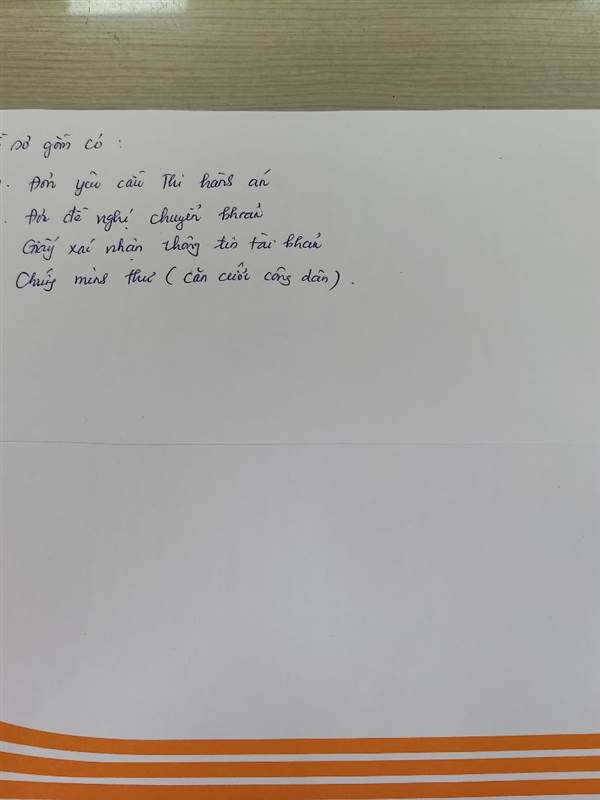 sơ gồm có :
. Đơn yêu cầu Thi hành án
. Đơn đề nghị chuyển khoản
Giấy xác nhận thông tin tài khoản
Chứng minh thư ( căn cước công dân ) .